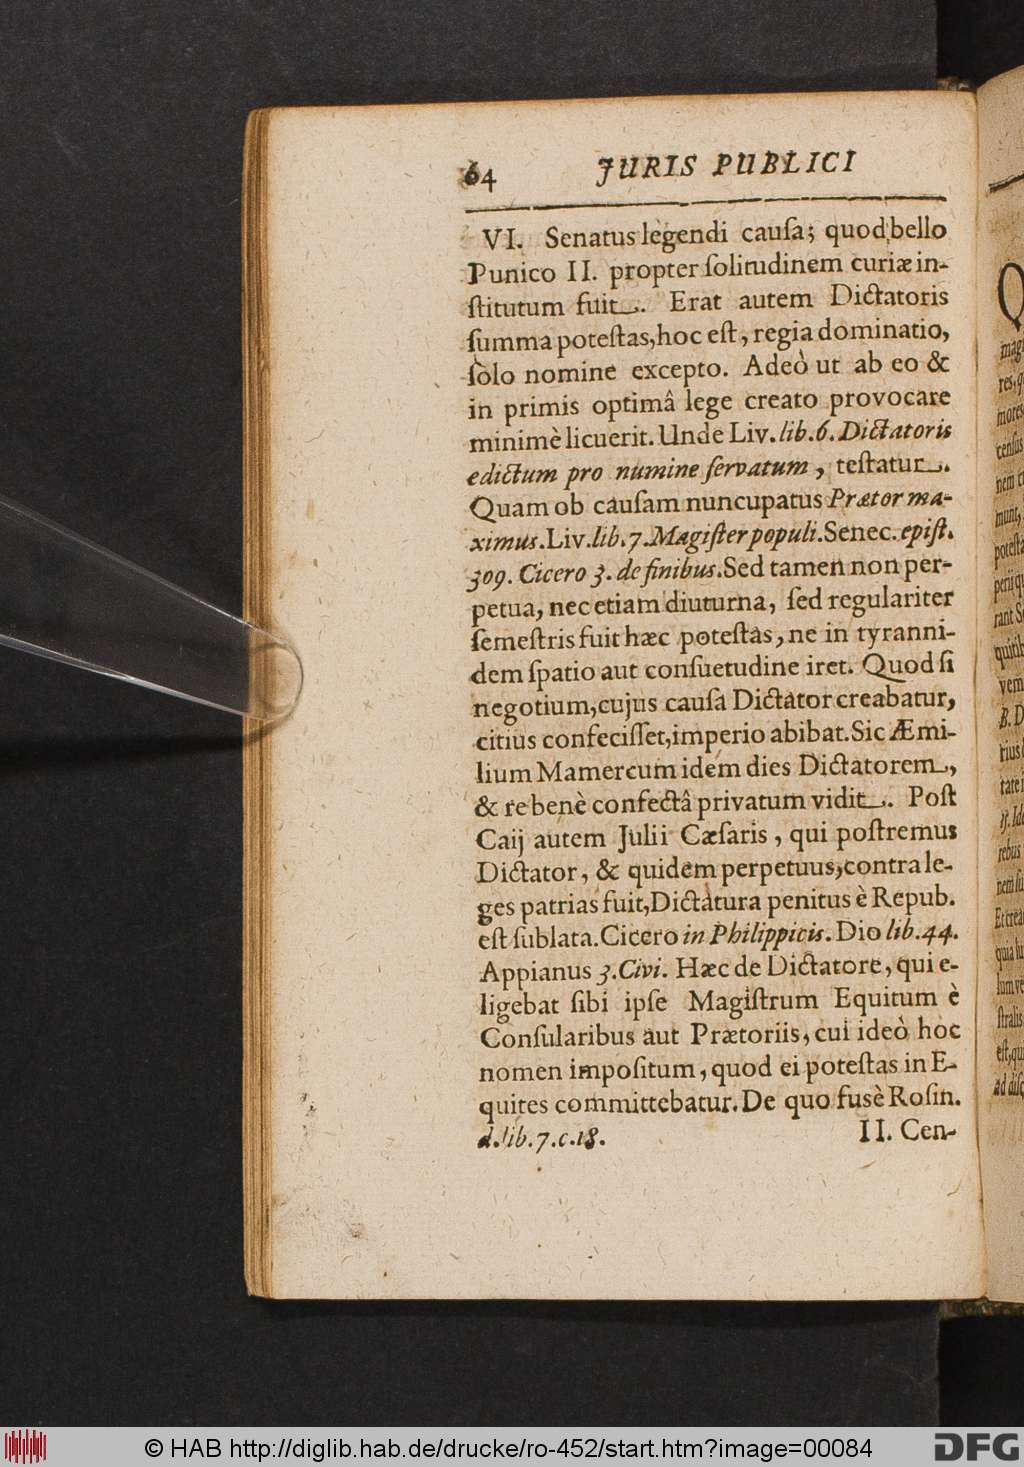 64 JURIS PUBLICI
VI. Senatus legendi cauſa; quod bello
Punico II. propter ſolitudinem curiæ in-
ſtitutum fuit. Erat autem Dictatoris
ſumma poteſtas, hoc eſt, regia dominatio,
ſolo nomine excepto. Adeò ut ab eo &
in primis optimâ lege creato provocare
minimè licuerit. Unde Liv. lib. 6. Dictatoris
edictum pro numine ſervatum, teſtatur.
Quam ob cauſam nuncupatus Prætor ma-
ximus. Liv. lib. 7. Magiſter populi. Senec. epiſt.
309. Cicero 3. de finibus. Sed tamen non per-
petua, nec etiam diuturna, ſed regulariter
ſemeſtris fuit hæc poteſtas, ne in tyranni-
dem ſpatio aut conſuetudine iret. Quod ſi
negotium, cujus cauſa Dictator creabatur,
citius confeciſſet, imperio abibat. Sic Æmi-
lium Mamercum idem dies Dictatorem,
& re benè confectâ privatum vidit. Poſt
Caij autem Julii Cæſaris, qui poſtremus
Dictator, & quidem perpetuus, contra le-
ges patrias fuit, Dictatura penitus è Repub.
eſt ſublata. Cicero in Philippicis. Dio lib. 44.
Appianus 3. Civi. Hæc de Dictatore, qui e-
ligebat ſibi ipſe Magiſtrum Equitum è
Conſularibus aut Prætoriis, cui ideò hoc
nomen impoſitum, quod ei poteſtas in E-
quites committebatur. De quo fusè Roſin.
d. lib. 7. c. 18. II. Cen-
© HAB http://diglib.hab.de/drucke/ro-452/start.htm?image=00084
DFG